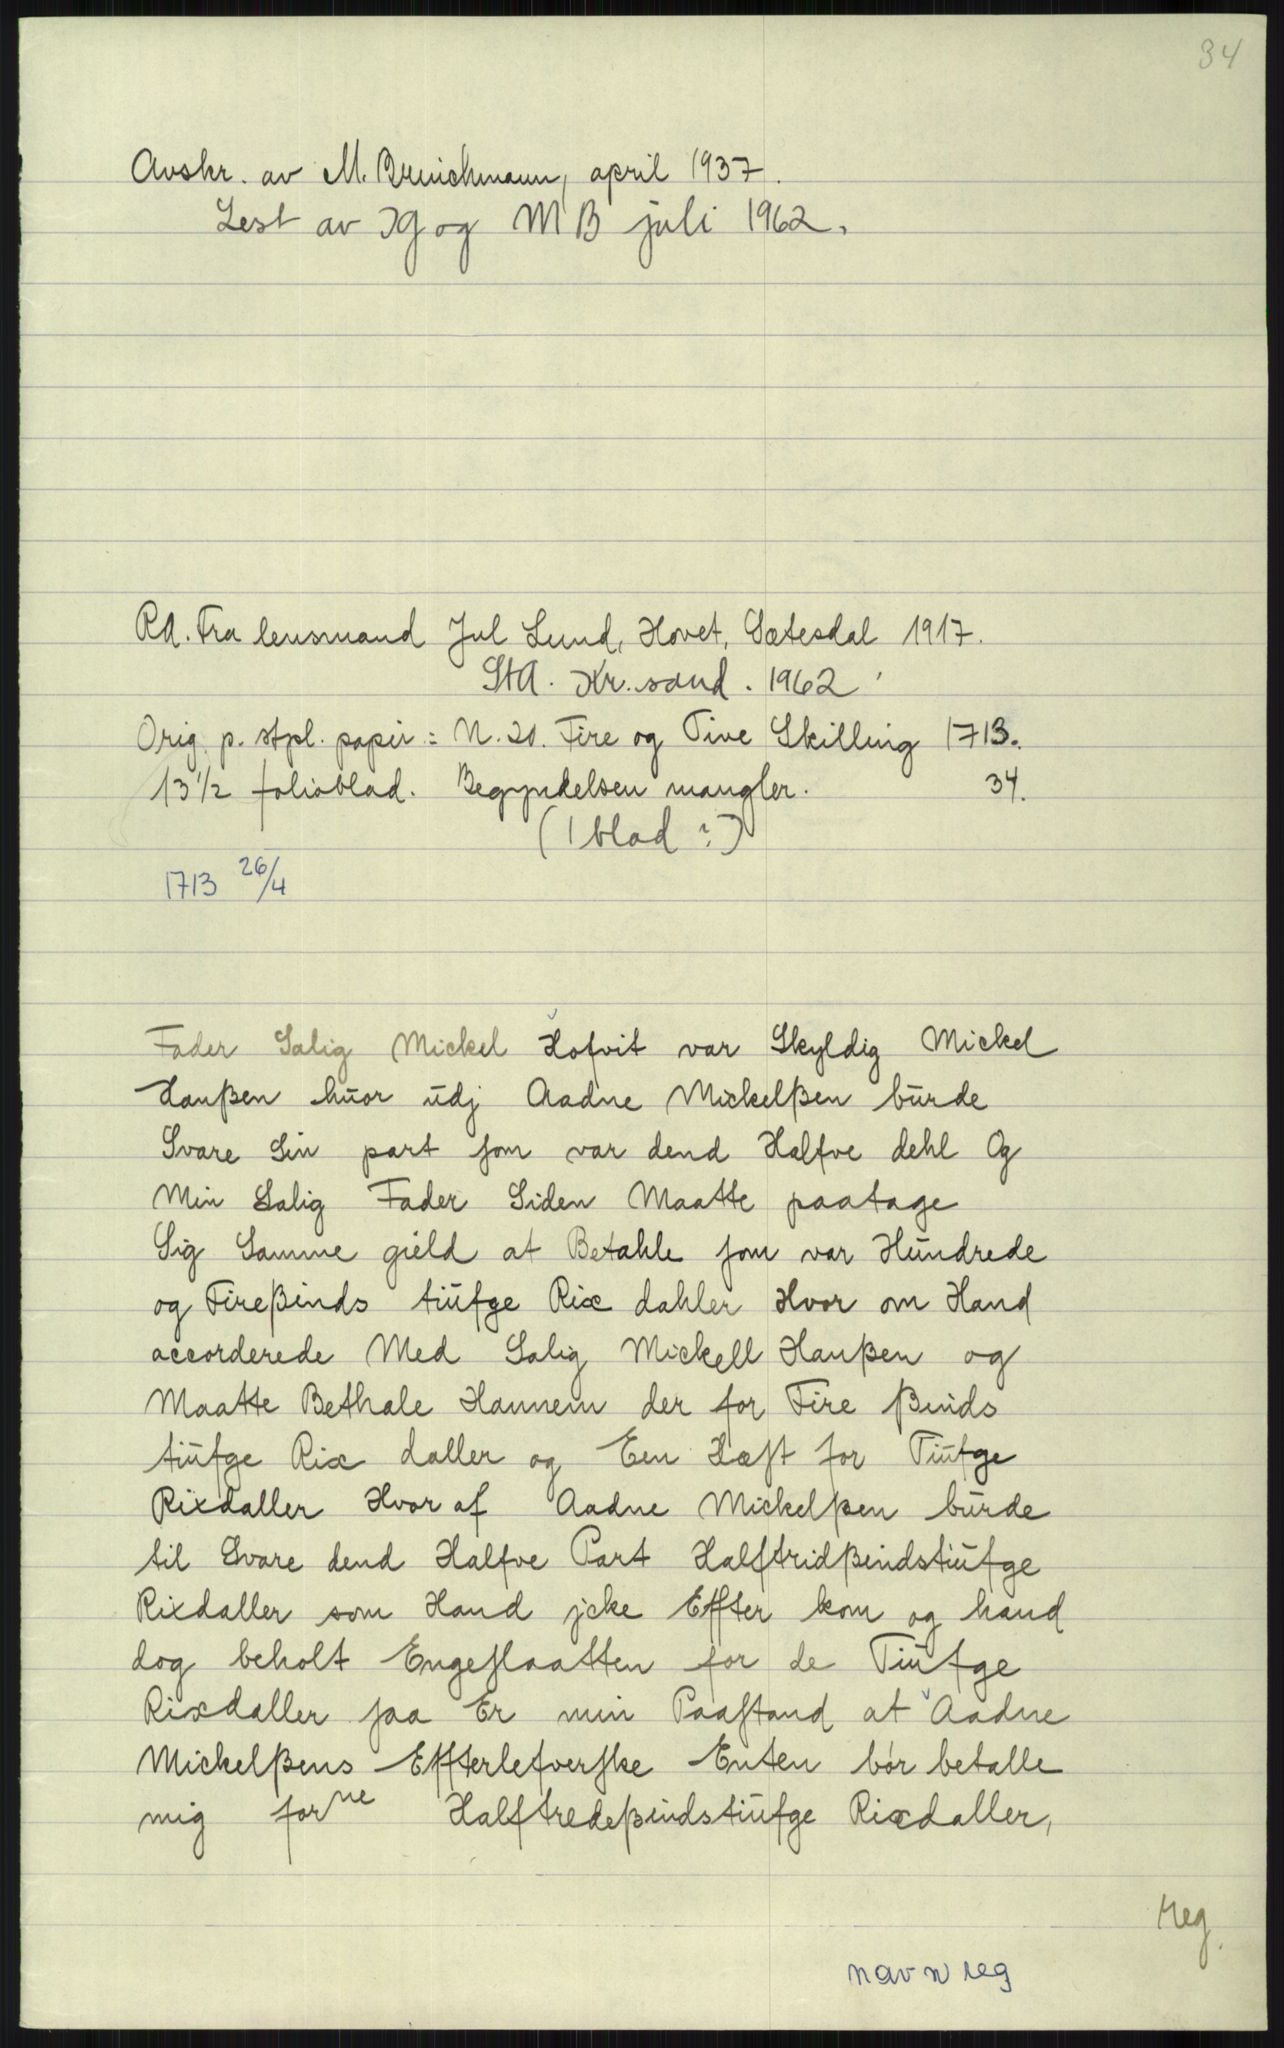 34
Avskr. av M. Brinchmann, april 1937.
Lest av IG og MB juli 1962.
RA. Fra lensmand Jul Lund, Hovet, Sætesdal 1917.
StA. Kr.sand. 1962
Orig. p. stpl. papir: N. 20. Fire og Tive Skilling 1713.
13 1/2 folioblad. Begyndelsen mangler. 34.
(1 blad ?)
1713 26/4
Fader Salig Mickel Hofvit var Skyldig Mickel
Hanßen huor udj Aadne Mickelßen bürde
Svare Sin part som var dend Halfve dehl Og
Min Salig Fader Siden Maatte paatage
Sig Samme gield at Betahle som var Hündrede
og Fireßinds tiüfge Rix dahler Hvor om Hand
accorderede Med Salig Mickell Hanßen og
Maatte Bethale Hannem der for Fire ßinds
tiüfge Rix daller og Een Hæst for Tiüfge
Rixdaller Hvor af Aadne Mickelßen bürde
til Svare dend Halfve Part Halftridßindstiüfge
Rixdaller som Hand jcke Effter kom og hand
dog beholt Engeslaatten for de Tiüfge
Rixdaller saa Er min Paastand at Aadne
Mickelßens Effterlefverske Enten bór betalle
mig forne Halftredeßindstiüfge Rixdaller,
Reg.
navn reg